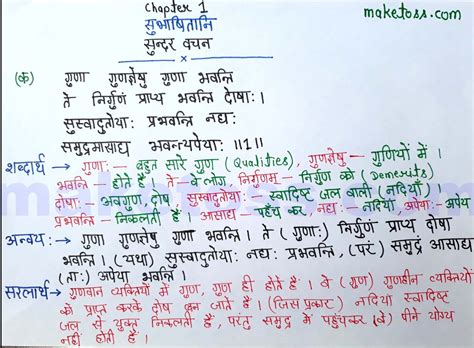 Chapter 1
maketoss.com
सुभाषितानि
सुन्दर वचन
(क) गुणा गुणज्ञेषु गुणा भवन्ति
ते निर्गुणं प्राप्य भवन्ति दोषाः।
सुस्वादुतोयाः प्रभवन्ति नद्यः
समुद्रमासाद्य भवन्त्यपेयाः ॥1॥
शब्दार्थ → गुणाः- बहुत सारे गुण (Qualities), गुणज्ञेषु - गुणियों में।
भवन्ति - होते हैं। ते - वे लोग, निर्गुणम् - निर्गुण को (Demerits)
दोषाः- अवगुण, दोष सुस्वादुतोयाः- स्वादिष्ट जल वाली (नदियाँ)।
प्रभवन्ति - निकलती हैं। आसाद्य - पहुँच कर, नद्यः - नदियाँ, अपेयः- अपेय
अन्वयः → गुणा गुणज्ञेषु गुणा भवन्ति। ते (गुणाः) निर्गुणं प्राप्य दोषा
भवन्ति। (यथा) सुस्वादुतोयाः नद्यः प्रभवन्ति, (परं) समुद्रं आसाद्य
(ताः) अपेया भवन्ति।
सरलार्थ → गुणवान व्यक्तियों में गुण, गुण ही होते हैं। वे (गुण) गुणहीन व्यक्तियों
को प्राप्त करके दोष बन जाते हैं। (जिस प्रकार) नदियाँ स्वादिष्ट
जल से युक्त निकलती हैं, परंतु समुद्र में पहुंचकर (वे) पीने योग्य
नहीं होती हैं।